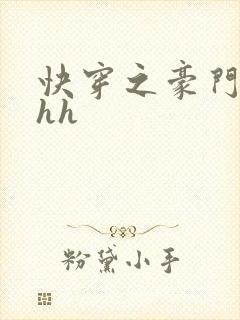 快穿之豪門
hh
粉黛小手